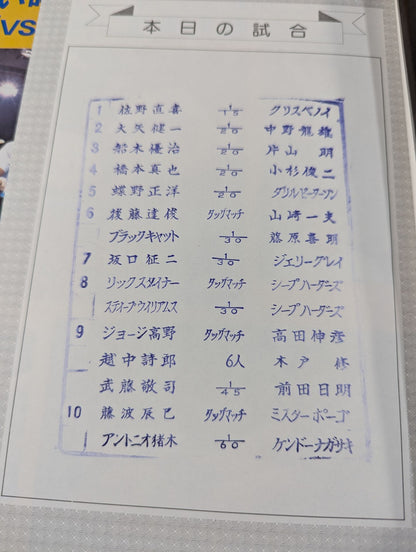 い
VS
本日の試合
1 松野直喜 1/15 クリスベノイ
2 大矢健一 1/20 中野龍雄
3 船木優治 1/20 片山 明
4 橋本真也 1/20 小杉俊二
5 蝶野正洋 1/20 ダリルピーターソン
6 後藤達俊 タッグマッチ 山崎一夫
ブラックキャット 1/30 藤原喜明
7 坂口征二 1/30 ジェリーグレイ
8 リックスタイナー タッグマッチ シープハーダーズ
スティーブウィリアムス 1/30 シープハーダーズ
9 ジョージ高野 タッグマッチ 高田伸彦
越中詩郎 6人 木戸 修
武藤敬司 1/45 前田日明
10 藤波辰巳 タッグマッチ ミスターポーゴ
アントニオ猪木 1/60 ケンドーナガサキ